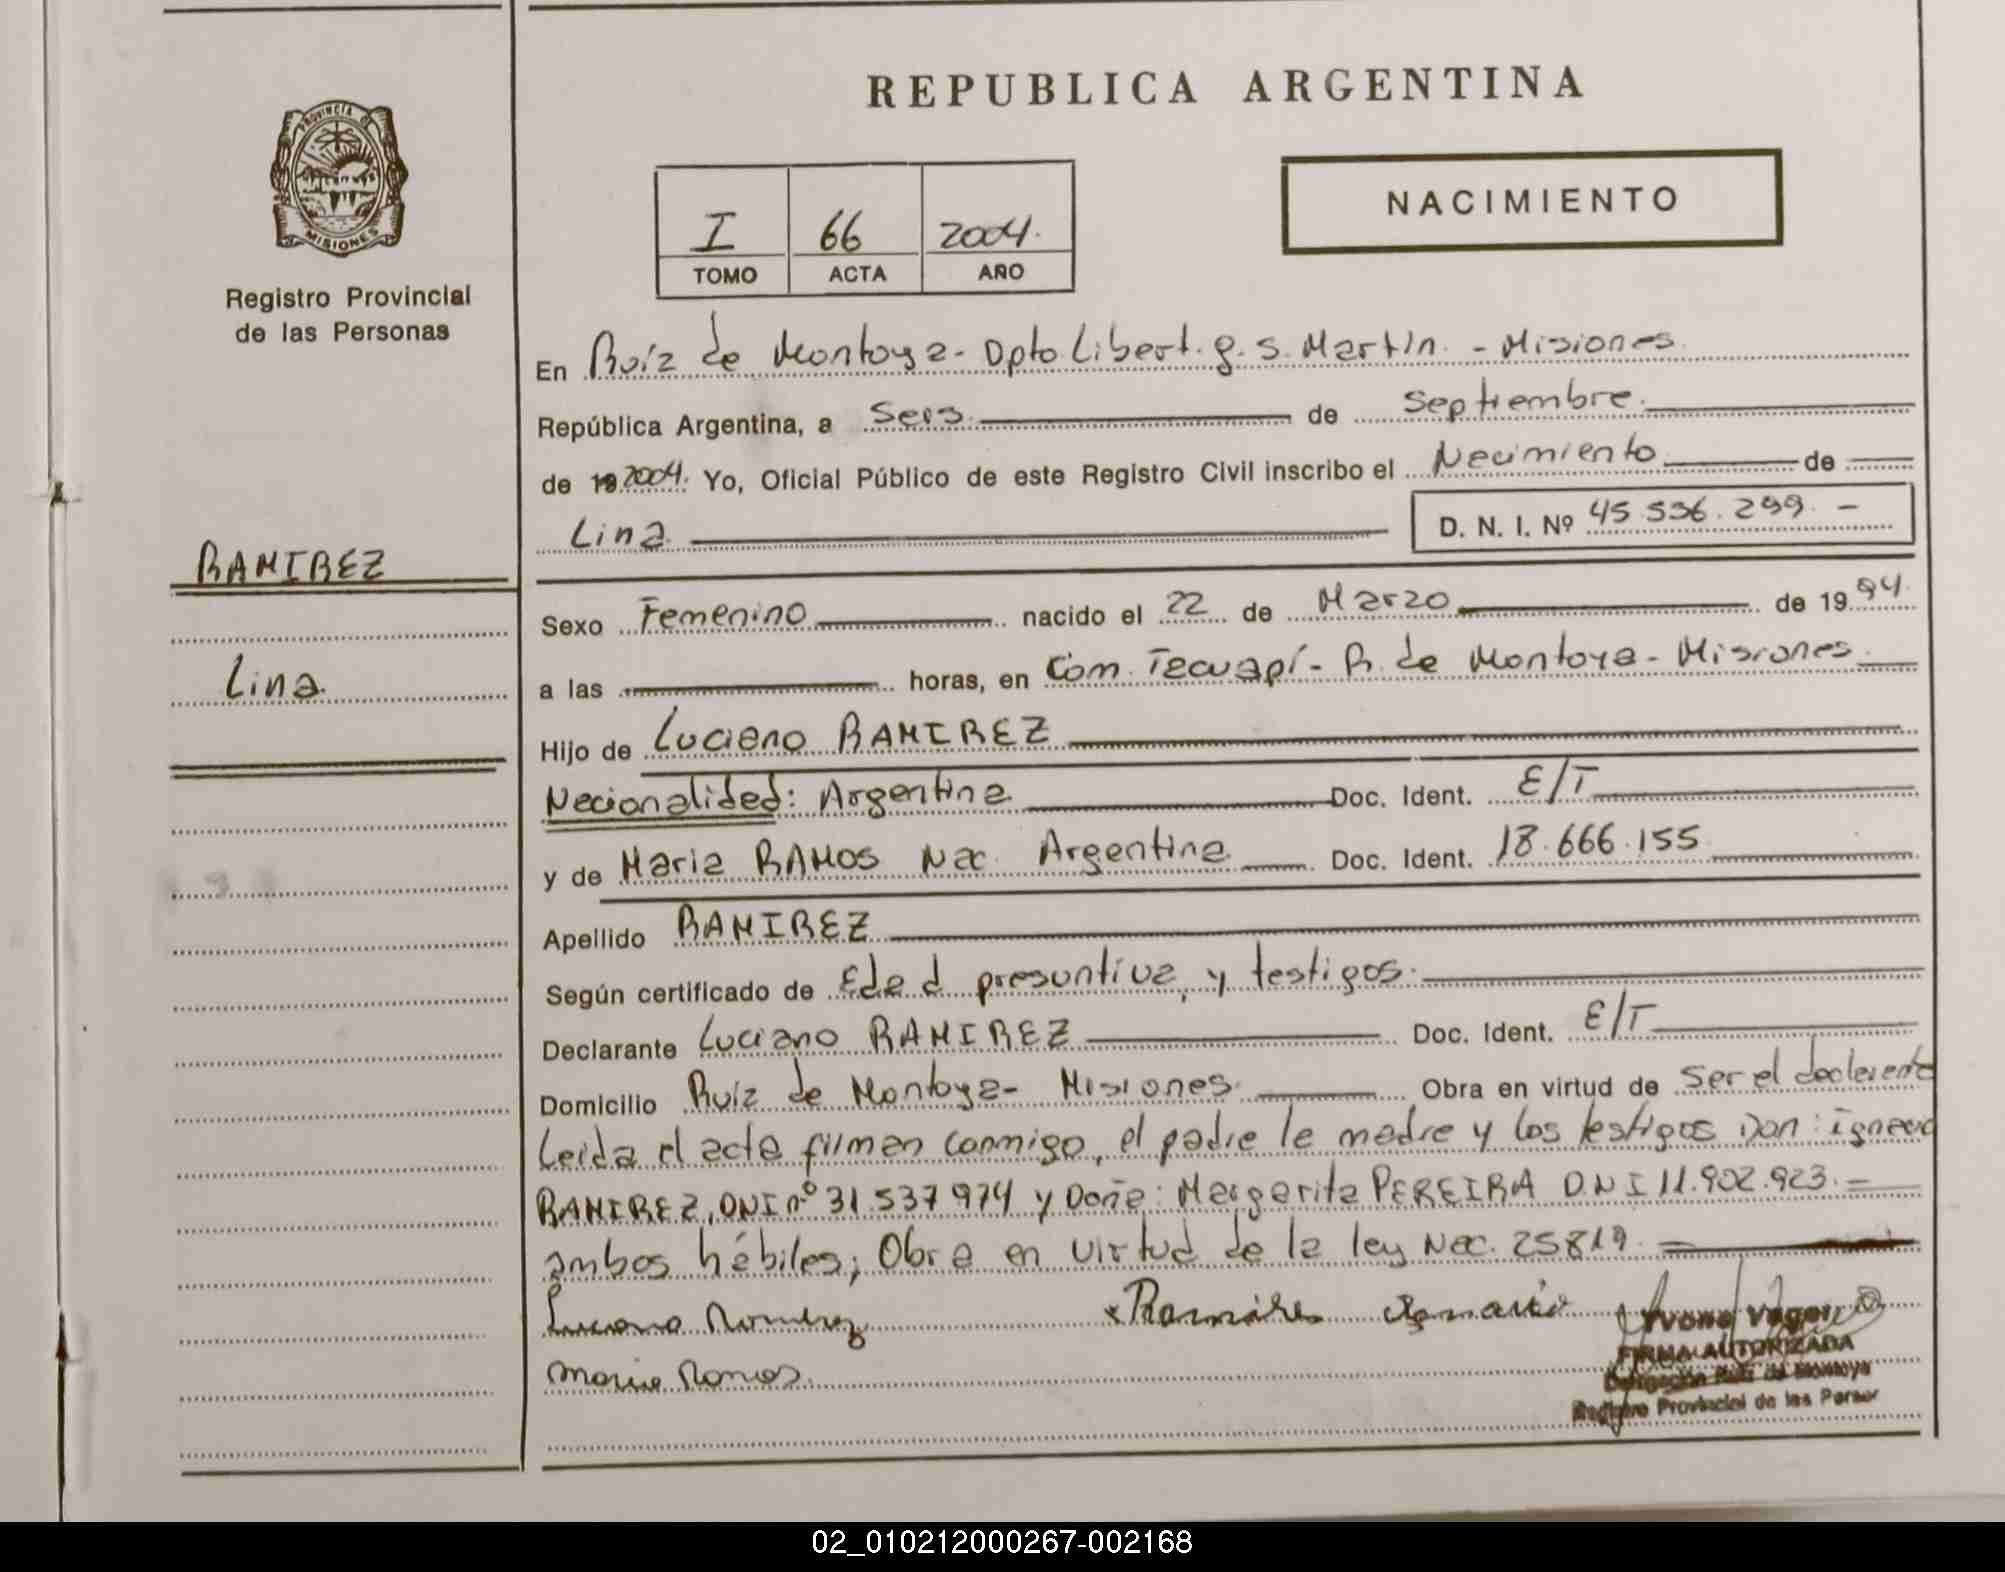 REPUBLICA ARGENTINA
PROVINCIA DE
MISIONES
Registro Provincial
de las Personas
NACIMIENTO
I 66 2004.
TOMO ACTA AÑO
En Ruíz de Montoya - Dpto Libert. g. S. Martín. - Misiones
República Argentina, a Seis de Septiembre.
de 19 2004. Yo, Oficial Público de este Registro Civil inscribo el Nacimiento de
Lina D. N. I. Nº 45.536.299. -
RAMIREZ
Lina
Sexo Femenino nacido el 22 de Marzo de 19 94.
a las horas, en Com. Tecuapí - R. de Montoya - Misiones
Hijo de Luciano RAMIREZ
Nacionalidad: Argentina Doc. Ident. E/T
y de Maria RAMOS Nac. Argentina Doc. Ident. 18.666.155
Apellido RAMIREZ
Según certificado de Edad presuntiva, y testigos.
Declarante Luciano RAMIREZ Doc. Ident. E/T
Domicilio Ruíz de Montoya - Misiones Obra en virtud de Ser el declarante
Leida el acta firman conmigo, el padre la madre y los testigos Don: Ignacio
RAMIREZ, DNI nº 31.537.974 y Doña: Margarita PEREIRA D.N.I 11.902.923. =
ambos hábiles; Obra en virtud de la ley Nac. 25819.
Luciano Ramirez Ramires
Maria Ramos
FIRMA AUTORIZADA
Delegación Ruiz de Montoya
Registro Provincial de las Person
02_010212000267-002168